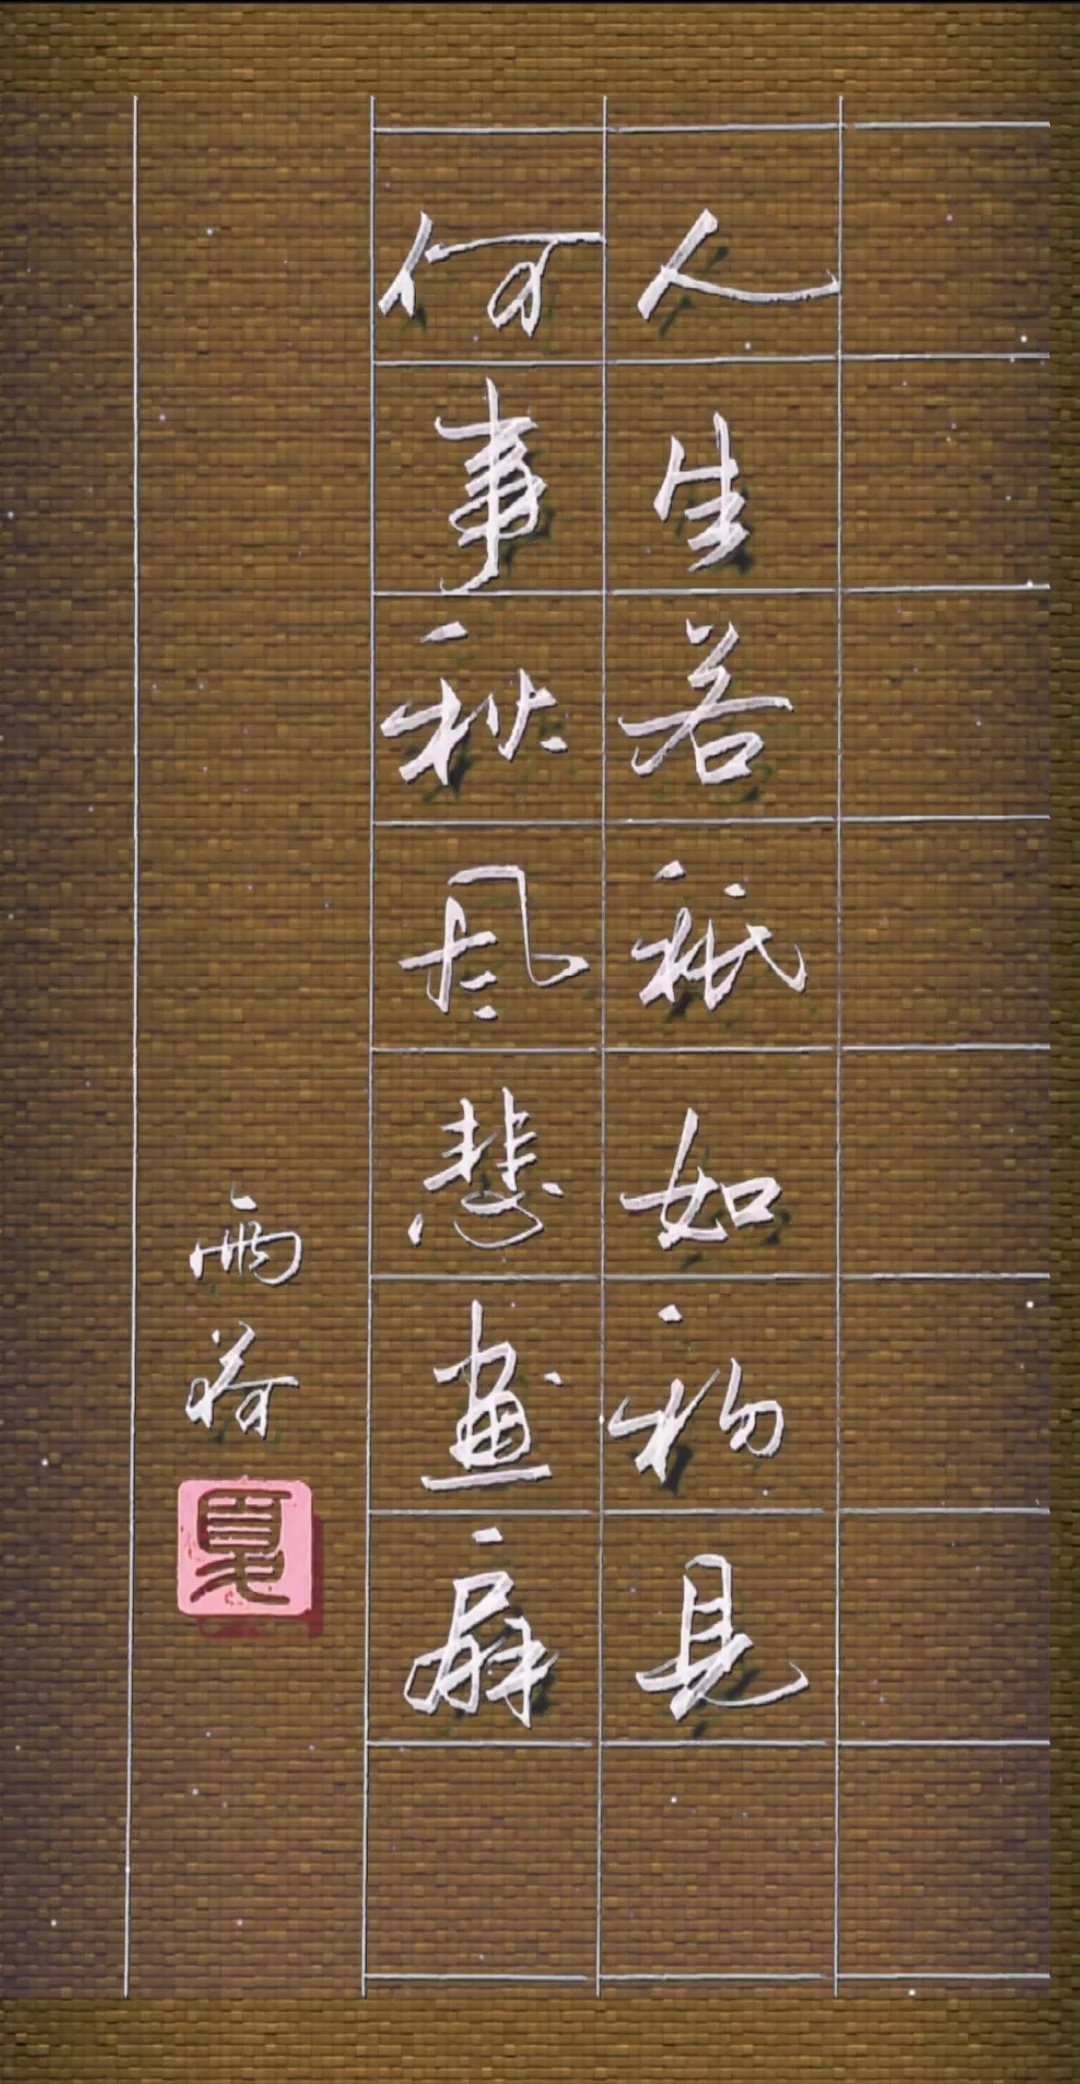 人生若祇如初見
何事秋風悲畫扇
雨荷
夏